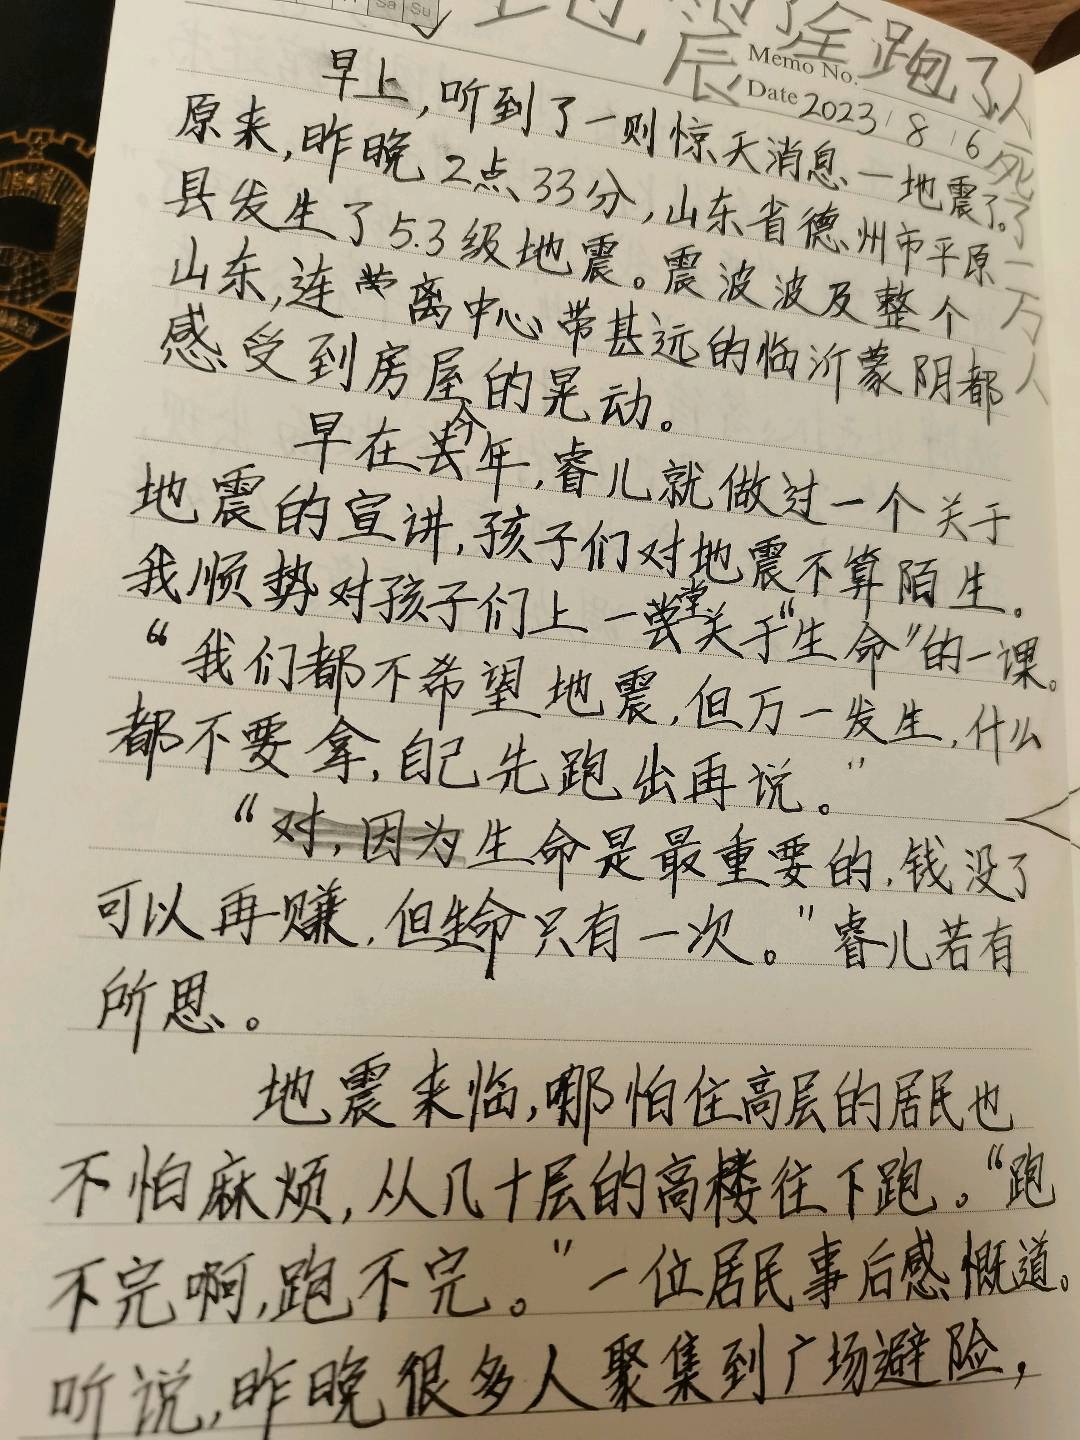 Sa Su
地震
跑了
人
死了一万人
Memo No.
Date 2023/8/6
早上,听到了一则惊天消息—地震了。
原来,昨晚2点33分,山东省德州市平原
县发生了5.3级地震。震波波及整个
山东,连离中心带甚远的临沂蒙阴都
感受到房屋的晃动。
早在今年,睿儿就做过一个关于
地震的宣讲,孩子们对地震不算陌生。
我顺势对孩子们上一堂关于“生命”的一课。
“我们都不希望地震,但万一发生,什么
都不要拿,自己先跑出再说。”
“对,因为生命是最重要的,钱没了
可以再赚,但生命只有一次。”睿儿若有
所思。
地震来临,哪怕住高层的居民也
不怕麻烦,从几十层的高楼往下跑。“跑
不完啊,跑不完。”一位居民事后感慨道。
听说,昨晚很多人聚集到广场避险,